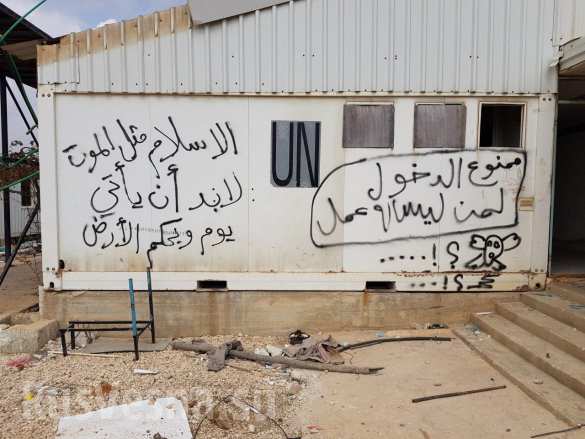 الاسلام مثل الموت
لابد أن يأتي
يوم ويحكم الأرض
UN
ممنوع الدخول
لمن ليس له عمل
؟!.....
؟!...
rusvesna.su